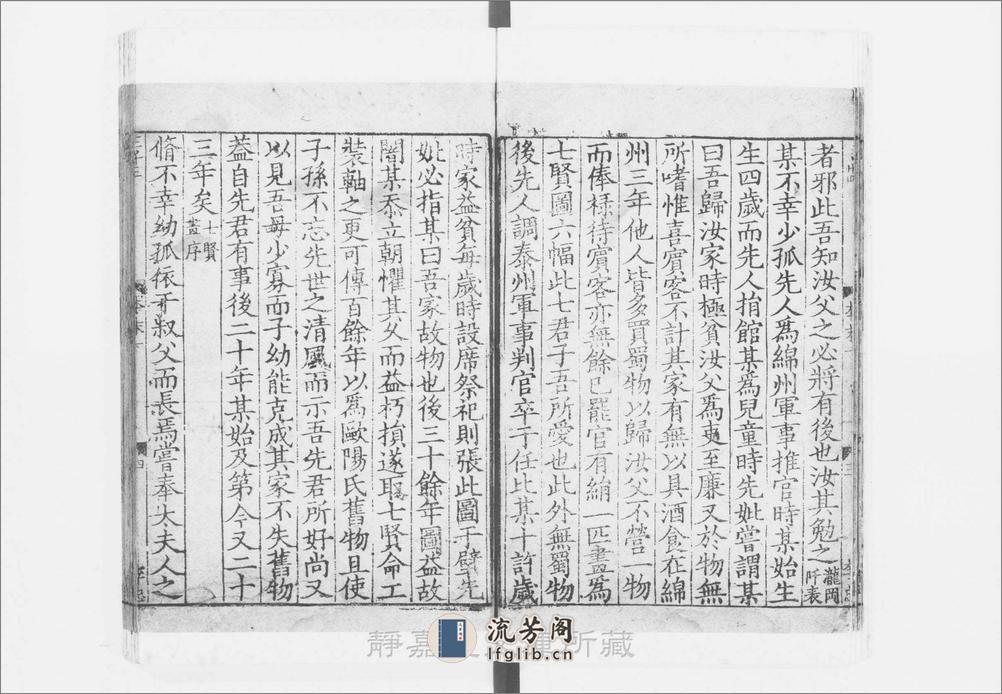 者邪此吾知汝父之必將有後也汝其勉之瀧岡阡表
某不幸少孤先人爲綿州軍事推官時某始生
生四歲而先人捐館某爲兒童時先妣嘗謂某
曰吾歸汝家時極貧汝父爲吏至廉又於物無
所嗜惟喜賓客不計其家有無以具酒食在綿
州三年他人皆多買蜀物以歸汝父不營一物
而俸祿待賓客亦無餘已罷官有絹一匹畫爲
七賢圖六幅此七君子吾所愛也此外無蜀物
後先人調泰州軍事判官卒于任比某十許歲
時家益貧每歲時設席祭祀則張此圖于壁先
妣必指某曰吾家故物也後三十餘年圖益故
闇某忝立朝懼其久而益朽損遂取七賢命工
裝軸之更可傳百餘年以爲歐陽氏舊物且使
子孫不忘先世之清風而示吾先君所好尚又
以見吾母少寡而子幼能克成其家不失舊物
蓋自先君有事後二十年某始及第今又二十
三年矣七賢畫序
脩不幸幼孤依于叔父而長焉嘗奉太夫人之
四
靜嘉 所藏
流芳阁
lfglib.cn